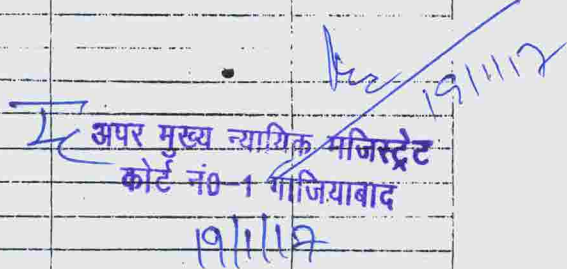 19/1/17
अपर मुख्य न्यायिक मजिस्ट्रेट
कोर्ट नं0-1 गाजियाबाद
19/1/17